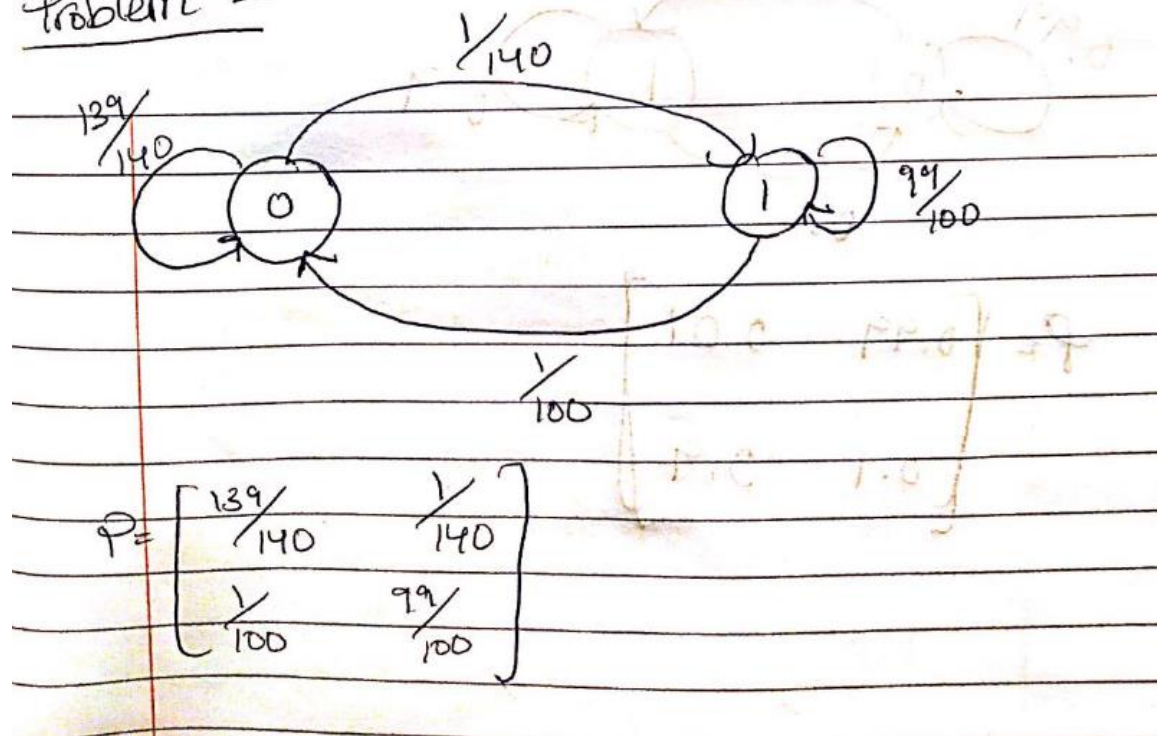 Problem
1/140
139/140
0
1
99/100
1/100
P= [ 139/140 1/140
1/100 99/100 ]